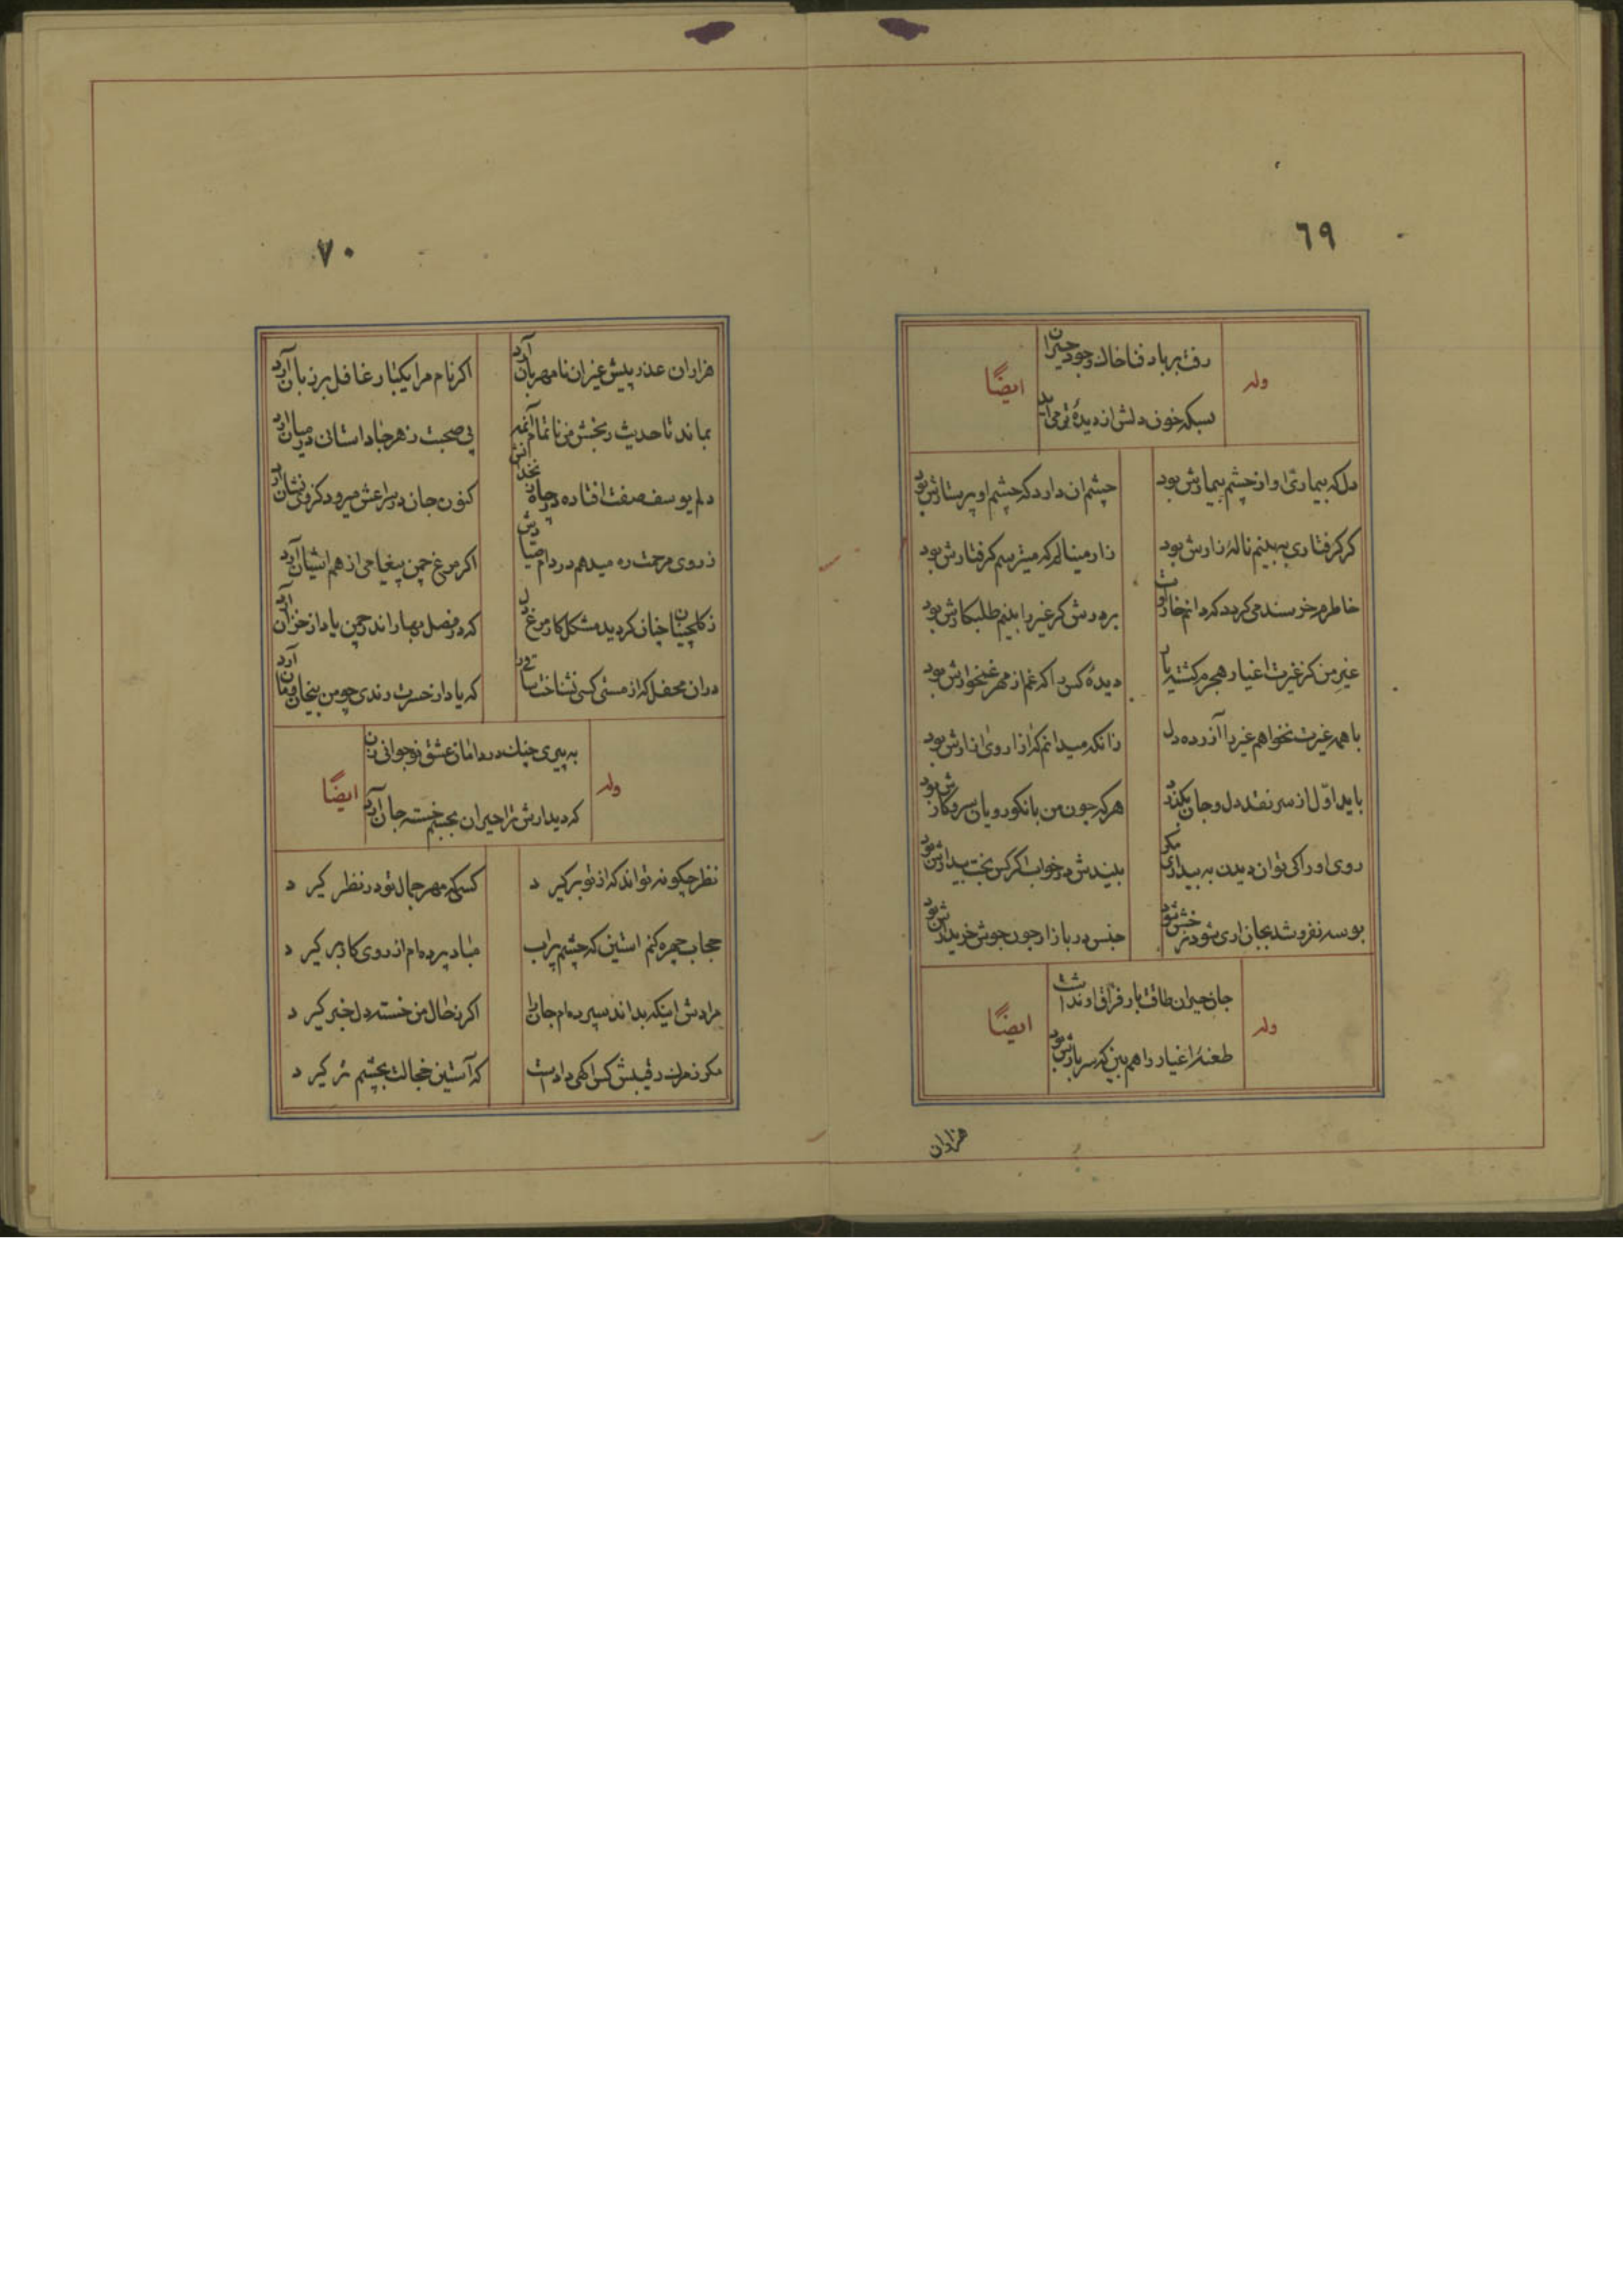 ٦٩
وله
رفت بر باد فنا خاک وجود حیران
ایضًا
بسکه خون دلش از دیدهٔ تر می‌آید
دل که بیماری او از چشم بیمارش بود
چشم ان دارد که چشم او پرستارش بود
کر کرفتاری به بینم نالهٔ زارش بود
زار مینالم که میترسم کرفتارش بود
خاطرم خرسند می کردد که دانم خار اوست
بر درش کر غیر را بینم طلبکارش بود
غیر من کز غیرت اغیار هجرم کشته یار
دیدهٔ کس را که غم از مهر غمخوارش بود
با همه غیرت نخواهم غیر را آزرده دل
زانکه میدانم که ازار وی ازارش بود
باید اوّل از سر نقد دل و جان بکذرد
هر که چون من با نکورویان سر و کارش بود
روی او را کی توان دیدن به بیداری مکر
بیندش در خواب اکر کس بخت بیدارش بود
بوسه نفروشد بجان اری شود نرخش فزود
جنس در بازار چون جوش خریدارش بود
وله
جان حیران طاقت بار فراق او نداشت
ایضًا
طعنهٔ اغیار را هم بین که سربارش بود
هزاران
٧٠
هزاران عذر پیش غیر ان نامهربان آرد
اکر نام مرا یکبار غافل بر زبان آرد
بماند تا حدیث رنجش من ناتمام آنمه
پی صحبت ز هر جا داستانی در میان ارد
دلم یوسف صفت افتاده در چاه زنخدانش
کنون جان در سراغش میرود کز وی نشان ارد
ز روی مرحمت ره میدهم در دام صیادش
اکر مرغ چمن پیغامی از هم اشیان آرد
ز کلچینان چنان کردیده مشکل کار مرغ دل
که در فصل بهار اندر چمن یاد از خزان آرد
در ان محفل که از مستی کسی نشناخت ساقی را
که یاد از حسرت رندی چو من بیخانمان آرد
وله
به پیری چنک در دامان عشق نوجوانی زن
ایضًا
که دیدارش ترا حیران بجسم خسته جان آرد
نظر چکونه تواند که از تو برکیرد
کسی که مهر جمال تو در نظر کیرد
حجاب چهره کنم استین که چشم پراب
مباد پرده‌ام از روی کار برکیرد
مرادش اینکه بداند سپرده‌ام جان را
اکر ز حال من خسته دل خبر کیرد
که آستین خجالت بچشم تر کیرد